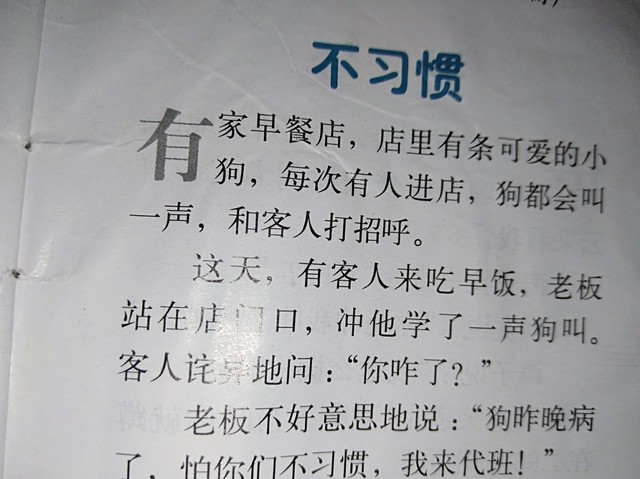 不习惯
有家早餐店，店里有条可爱的小
狗，每次有人进店，狗都会叫
一声，和客人打招呼。
这天，有客人来吃早饭，老板
站在店门口，冲他学了一声狗叫。
客人诧异地问：“你咋了？”
老板不好意思地说：“狗昨晚病
了，怕你们不习惯，我来代班！”